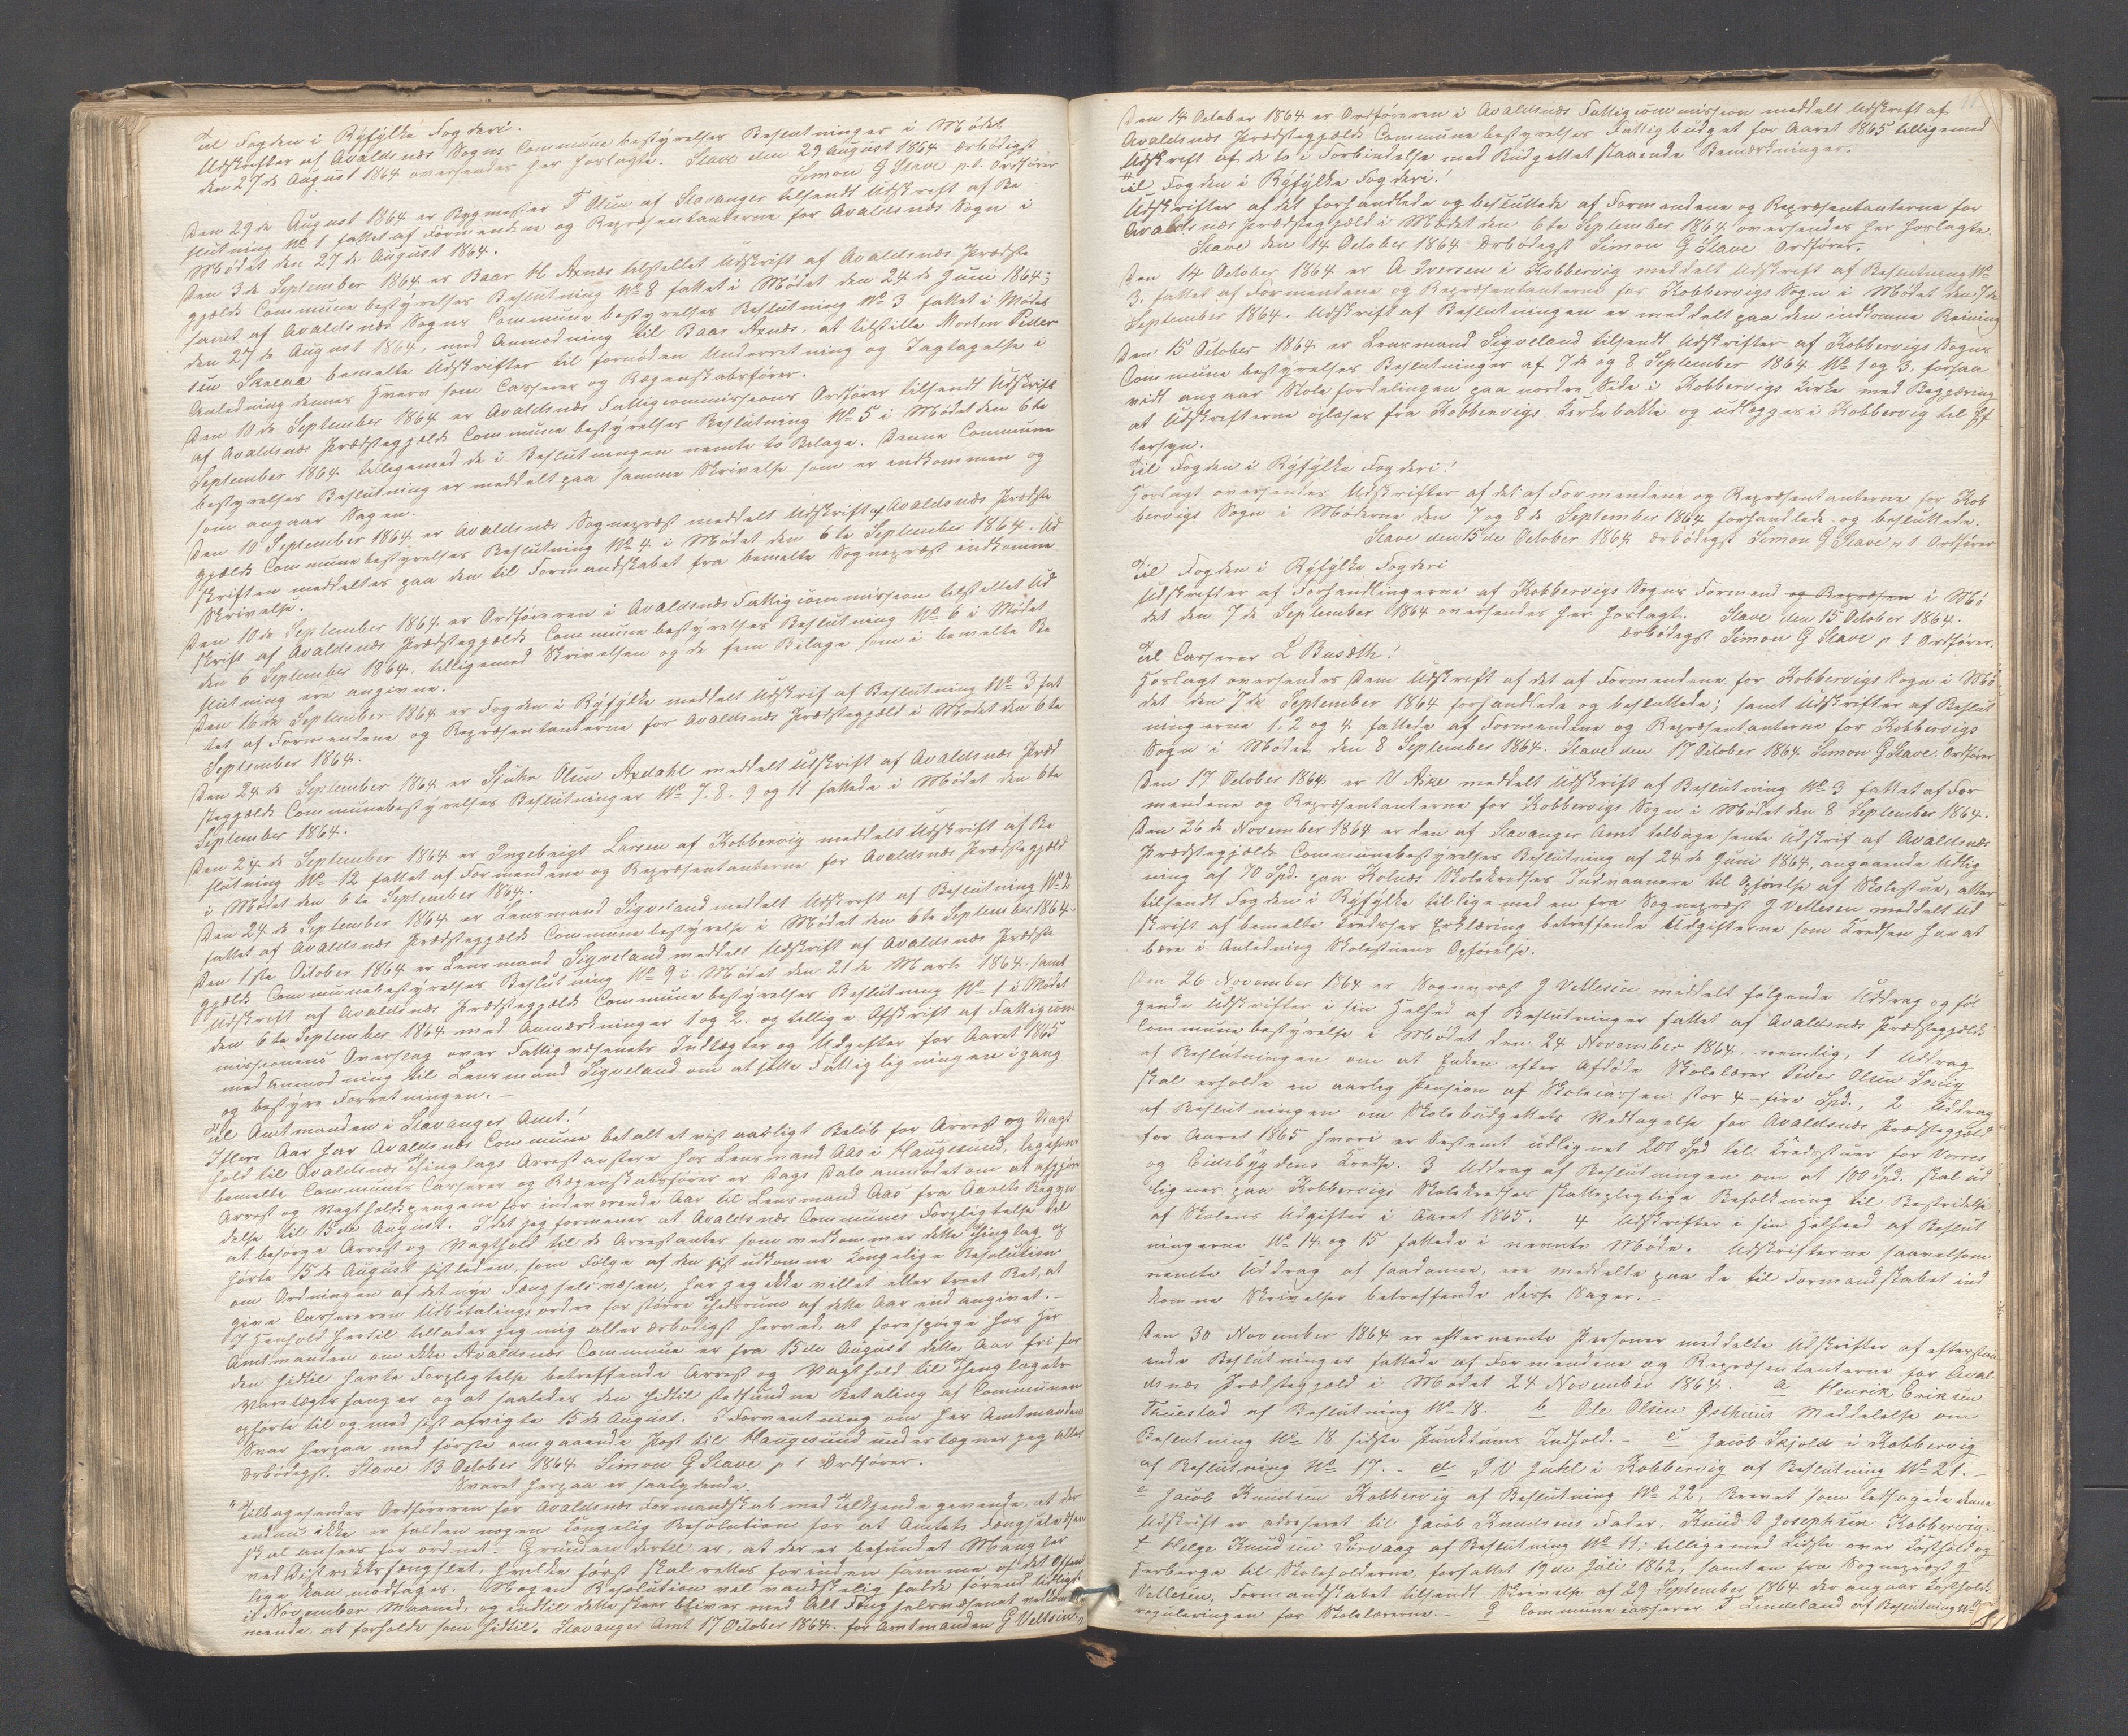 Til Fogden i Ryfylke Fogderi.
Udskrifter af Avaldsnæs Sogns Communebestyrelses Beslutninger i Mødet
den 27de August 1864 oversendes her hoslagte. Stave den 29 August 1864 ærbødigst
Simon G Stave p.t. Ordfører
Den 29de August 1864 er Bygmester T Olsen af Stavanger tilsendt Udskrift af Be
slutning No 1 fattet af Formændene og Repræsentanterne for Avaldsnæs Sogn i
Mødet den 27de August 1864.
Den 3de September 1864 er Baar H Axnæs tilstillet Udskrift af Avaldsnæs Præste
gjælds Communebestyrelses Beslutning No 8 fattet i Mødet den 24de Juni 1864;
samt af Avaldsnæs Sogns Communebestyrelses Beslutning No 3 fattet i Mødet
den 27de August 1864, med Anmodning til Baar Axnæs, at tilstille Morten Peder
sen bemelte Udskrifter til fornøden Underretning og Iagtagelse i
Anledning dennes Hverv som Casserer og Regenskabsfører.
Den 10de September 1864 er Avaldsnæs Fattigcommissions Ordfører tilsendt Udskrift
af Avaldsnæs Præstegjælds Communebestyrelses Beslutning No 5 i Mødet den 6te
September 1864 tilligemed de i Beslutningen nevnte to Bilage. Denne Commune
bestyrelses Beslutning er meddelt paa samme Skrivelse som er indkommen og
som angaar Sagen.
Den 10 September 1864 er Avaldsnæs Sognepræst meddelt Udskrift af Avaldsnæs Præste
gjælds Communebestyrelses Beslutning No 4 i Mødet den 6te September 1864. Ud
skriften meddeltes paa den til Formandskabet fra bemelte Sognepræst indkomne
Skrivelse.
Den 10de September 1864 er Ordføreren i Avaldsnæs Fattigcommission tilstillet Ud
skrift af Avaldsnæs Præstegjælds Communebestyrelses Beslutning No 6 i Mødet
den 6 September 1864, tilligemed Skrivelsen og de fem Bilage som i bemelte Be
slutning ere angivne.
Den 16de September 1864 er Fogden i Ryfylke meddelt Udskrif af Beslutning No 3 fat
tet af Formændene og Repræsentanterne for Avaldsnæs Præstegjæld i Mødet den 6te
September 1864.
Den 24de September 1864 er Olsen Axdahl meddelt Udskrift af Avaldsnæs Præ
stegjælds Communebestyrelses Beslutninger No 7. 8. 9 og 11 fattede i Mødet den 6te
September 1864.
Den 24de September 1864 er Ingebrigt Larsen af Kobbervig meddelt Udskrift af Be
slutning No 12 fattet af Formændene og Repræsentanterne for Avaldsnæs Præstegjæld
i Mødet den 6te September 1864.
Den 24de September 1864 er Lensmand Sigveland meddelt Udskrift af Beslutning No 2
fattet af Avaldsnæs Præstegjælds Communebestyrelse i Mødet den 6te September 1864.
Den 1ste October 1864 er Lensmand Sigveland meddelt Udskrift af Avaldsnæs Præste
gjælds Communebestyrelses Beslutning No 9 i Mødet den 21de Marts 1864, samt
Udskrift af Avaldsnæs Præstegjælds Communebestyrelses Beslutning No 1 i Mødet
den 6te September 1864 med Anmærkninger 1 og 2. og tillige Afskrift af Fattigcom
missionens Overslag over Fattigvæsenets Indtægter og Udgifter for Aaret 1865
med Anmodning til Lensmand Sigveland om at sætte Fattigligningen igang
og bestyre Forretningen.—
Til Amtmanden i Stavanger Amt!
I flere Aar har Avaldsnæs Commune betalt et vist aarligt Beløb for Arrest og Vagt
hold til Avaldsnæs Thinglags Arrestanter hos Lensmand Aas i Haugesund, ligesom
bemelte Communes Casserer og Regenskabsfører er Dags Dato anmodet om at afgjøre
Arrest og Vagtholdspengene for indeværende Aar til Lensmand Aas fra Aarets Begyn
delse til 15de August. Idet jeg formener at Avaldsnæs Communes Forpligtelse til
at besørge Arrest og Vagthold til de Arrestanter som vedkommer dette Thinglag op
hørte 15de August sidstleden, som Følge af den sidst udkomne Kongelige Resolution
om Ordningen af det nye Fængselsvæsen, har jeg ikke villet eller troet Ret, at
give Cassereren Udbetalingsordre for større Tidsrum af dette Aar end angivet.—
I Henhold hertil tillader jeg mig allerærbødigst herved, at forespørge hos Hr
Amtmanden om ikke Avaldsnæs Commune er fra 15de August dette Aar fri for
den hidtil havte Forpligtelse betreffende Arrest og Vagthold til Thinglagets
Varetægtsfanger og at saaledes den hidtil stedfundne Betaling af Communen
ophørte til og med sidst afvigte 15de August. I Forventning om Her Amtmandens
Svar herpaa med første omgaaende Post til Haugesund undertegner jeg aller
ærbødigst. Stave 13 October 1864 Simon G Stave p t Ordfører.
Svaret herpaa er saalydende.
" Tilbagesendes Ordføreren for Avaldsnæs Formandskab med Tilkjendegivende, at der
endnu ikke er falden nogen Kongelig Resolution for at Amtets Fængselsvæsen
skal ansees for ordnet. Grunden dertil er, at der er befundet Mangler
ved Distriktsfængslet, hvilke først skal rettes forinden samme af det Offent
lige kan modtages. Nogen Resolution vil vanskelig falde førend tidligst
i November Maaned, og indtil dette skeer bliver med Alt Fængselsvæsenet vedkom
mende at forholde som hidtil. Stavanger Amt 17 October 1864. for Amtmanden G Vellesen
Den 14 October 1864 er Ordføreren i Avaldsnæs Fattigcommission meddelt Udskrift af
Avaldsnæs Præstegjælds Communebestyrelses Fattigbudget for Aaret 1865 tilligemed
Udskrift af de to i Forbindelse med Budgettet staaende Bemærkninger.
Til Fogden i Ryfylke Fogderi!
Udskrifter af det forhandlede og besluttede af Formændene og Repræsentanterne for
Avaldsnæs Præstegjæld i Mødet den 6te September 1864 oversendes her hoslagte.
Stave den 14 October 1864 ærbødigst Simon G Stave Ordfører.
Den 14 October 1864 er A Iversen i Kobbervig meddelt Udskrift af Beslutning No
3. fattet af Formændene og Repræsentanterne for Kobbervigs Sogn i Mødet den 7de
September 1864. Udskrift af Beslutningen er meddelt paa den indkomne Reining
Den 15 October 1864 er Lensmand Sigveland tilsendt Udskrifter af Kobbervigs Sogns
Communebestyrelses Beslutninger af 7de og 8 September 1864 No 1 og 3. forsaa
vidt angaar Stolefordelingen paa nordre Side i Kobbervigs Kirke med Begjæring
at Udskrifterne oplæses fra Kobbervigs Kirkebakke og udlægges i Kobbervig til Ef
tersyn.
Til Fogden i Ryfylke Fogderi!
Hoslagt oversendes Udskrifter af det af Formændene og Repræsentanterne for Kob
bervigs Sogn i Møderne den 7 og 8de September 1864 forhandlede og besluttede.
Stave den 15de October 1864 ærbødigst Simon G Stave p t Ordfører
Til Fogden i Ryfylke Fogderi
Udskrifter af Forhandlingerne af Kobbervigs Sogns Formænd og Repræsen i Mø
det den 7de September 1864 oversendes her hoslagt. Stave den 15 October 1864.
ærbødigst Simon G Stave p t Ordfører.
Til Casserer L Busæth!
Hoslagt oversendes Dem Udskrift af det af Formændene for Kobbervigs Sogn i Mø
det den 7de September 1864 forhandlede og besluttede; samt Udskrifter af Beslut
ningerne 1, 2 og 4 fattede af Formændene og Repræsentanterne for Kobbervigs
Sogn i Mødet den 8 September 1864. Stave den 17 October 1864 Simon G Stave. Ordfører
Den 17 October 1864 er meddelt Udskrift af Beslutning No 3 fattet af For
mændene og Repræsentanterne for Kobbervigs Sogn i Mødet den 8 September 1864.
Den 26de November 1864 er den af Stavanger Amt tilbage sente Udskrif af Avaldsnæs
Præstegjælds Communebestyrelses Beslutning af 24de Juni 1864, angaaende Udlig
ning af 70 Spd. paa Kolnæs Skolekredses Indvaanere til Opførelse af Skolestue, atter
tilsendt Fogden i Ryfylke tilligemed en fra Sognepræst G Vellesen meddelt Ud
skrift af bemelte Kredses Erklæring betreffende Udgifterne som Kredsen har at
bære i Anledning Skolestuens Opførelse.
Den 26 November 1864 er Sognepræst G Vellesen meddelt følgende Uddrag og føl
gende Udskrifter i sin Helhed af Beslutninger fattet af Avaldsnæs Præstegjælds
Communebestyrelse i Mødet den 24 November 1864, nemlig, 1 Uddrag
af Beslutningen om at Enken efter Afdøde Skolelærer Peder Olsen
skal erholde en aarlig Pension af Skolecassen stor 4 – fire Spd., 2 Uddrag
af Beslutningen om Skolebudgettets Vedtagelse for Avaldsnæs Præstegjæld
for Aaret 1865 hvori er bestemt udlignet 200 Spd til Kredsstuer for Vorres
og Eidsbygdens Kredse. 3 Uddrag af Beslutningen om at 100 Spd. skal ud
lignes paa Kobbervigs Skolekredses skattepligtige Befolkning til Bestridelse
af Skolens Udgifter i Aaret 1865. 4 Udskrifter i sin Helheed af Beslut
ningerne No 14 og 15 fattede i nevnte Møde. Udskrifterne saavelsom
nemte Uddrag af saadanne, ere meddelte paa de til Formandskabet ind
komne Skrivelser betreffende disse Sager.—
Den 30 November 1864 er efternemte Personer meddelte Udskrifter af efterstaa
ende Beslutninger fattede af Formændene og Repræsentanterne for Aval
dsnæs Præstegjæld i Mødet 24 November 1864. a Henrik Eriksen
af Beslutning No 18. b Ole Olsen Østhuus Meddelelse om
Beslutning No 18 sidste Punktums Indhold.— c Jacob Skjolde i Kobbervig
af Beslutning No 17.— d I V Juhl i Kobbervig af Beslutning No 21.—
e Jacob Knudsen Kobbervig af Beslutning No 22, Brevet som ledsagede denne
Udskrift er adreseret til Jacob Knudsens Fader. Knud D Josephsen Kobbervig.
f Helge Knudsen Sørvaag af Beslutning No 11; tilligemed Lidste over Kosthold og
Herberge til Skoleholderne, forfattet 19de Juli 1862, samt en fra Sognepræst G
Vellesen, Formandskabet tilsendt Skrivelse af 29 September 1864 der angaar Kostholds
reguleringen for Skolelærerne.— g Communecasserer T Lindeland af Beslutning No